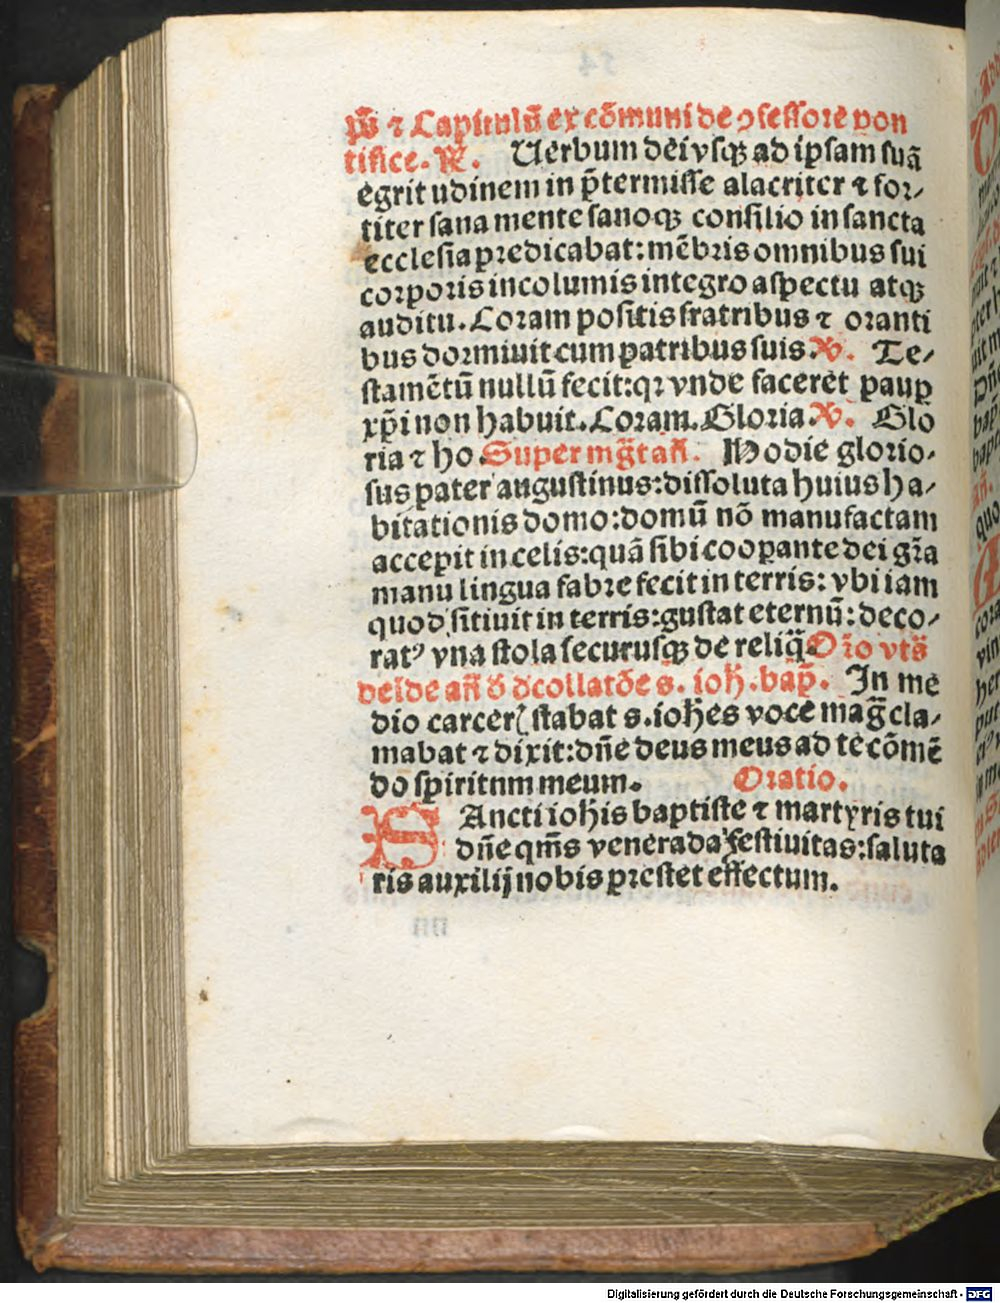 p̄s ⁊ Capitulū ex cōmuni de ꝯfessore pon
tifice. ꝶ. Uerbum dei vsqꝫ ad ipsam suā
egritudinem in p̄termisse alacriter ⁊ for⸗
titer sana mente sanoqꝫ consilio in sancta
ecclesia predicabat: mēbris omnibus sui
corporis incolumis integro aspectu atqꝫ
auditu. Coram positis fratribus ⁊ oranti
bus dormiuit cum patribus suis. ꝟ. Te⸗
stamētū nullū fecit: qꝛ vnde faceret pauꝑ
xp̄i non habuit. Coram. Gloria. ꝟ. Glo
ria ⁊ ho. Super mḡt an̄. Hodie glorio⸗
sus pater augustinus: dissoluta huius ha⸗
bitationis domo: domū nō manufactam
accepit in celis: quā sibi cooꝑante dei gr̄a
manu lingua fabrefecit in terris: vbi iam
quod sitiuit in terris: gustat eternū: deco⸗
ratꝰ vna stola securusqꝫ de reliq̄. Or̄o vts̄
de an̄ d̄ dcollatōe s. ioh̄. bap̄. In me
dio carceris stabat s. ioh̄es voce maḡ cla⸗
mabat ⁊ dixit: dn̄e deus meus ad te cōmē
do spiritnm meum. Oratio.
SAncti ioh̄is baptiste ⁊ martyris tui
dn̄e qm̄s venerāda festiuitas: saluta
ris auxilij nobis prestet effectum.
Digitalisierung gefördert durch die Deutsche Forschungsgemeinschaft - DFG